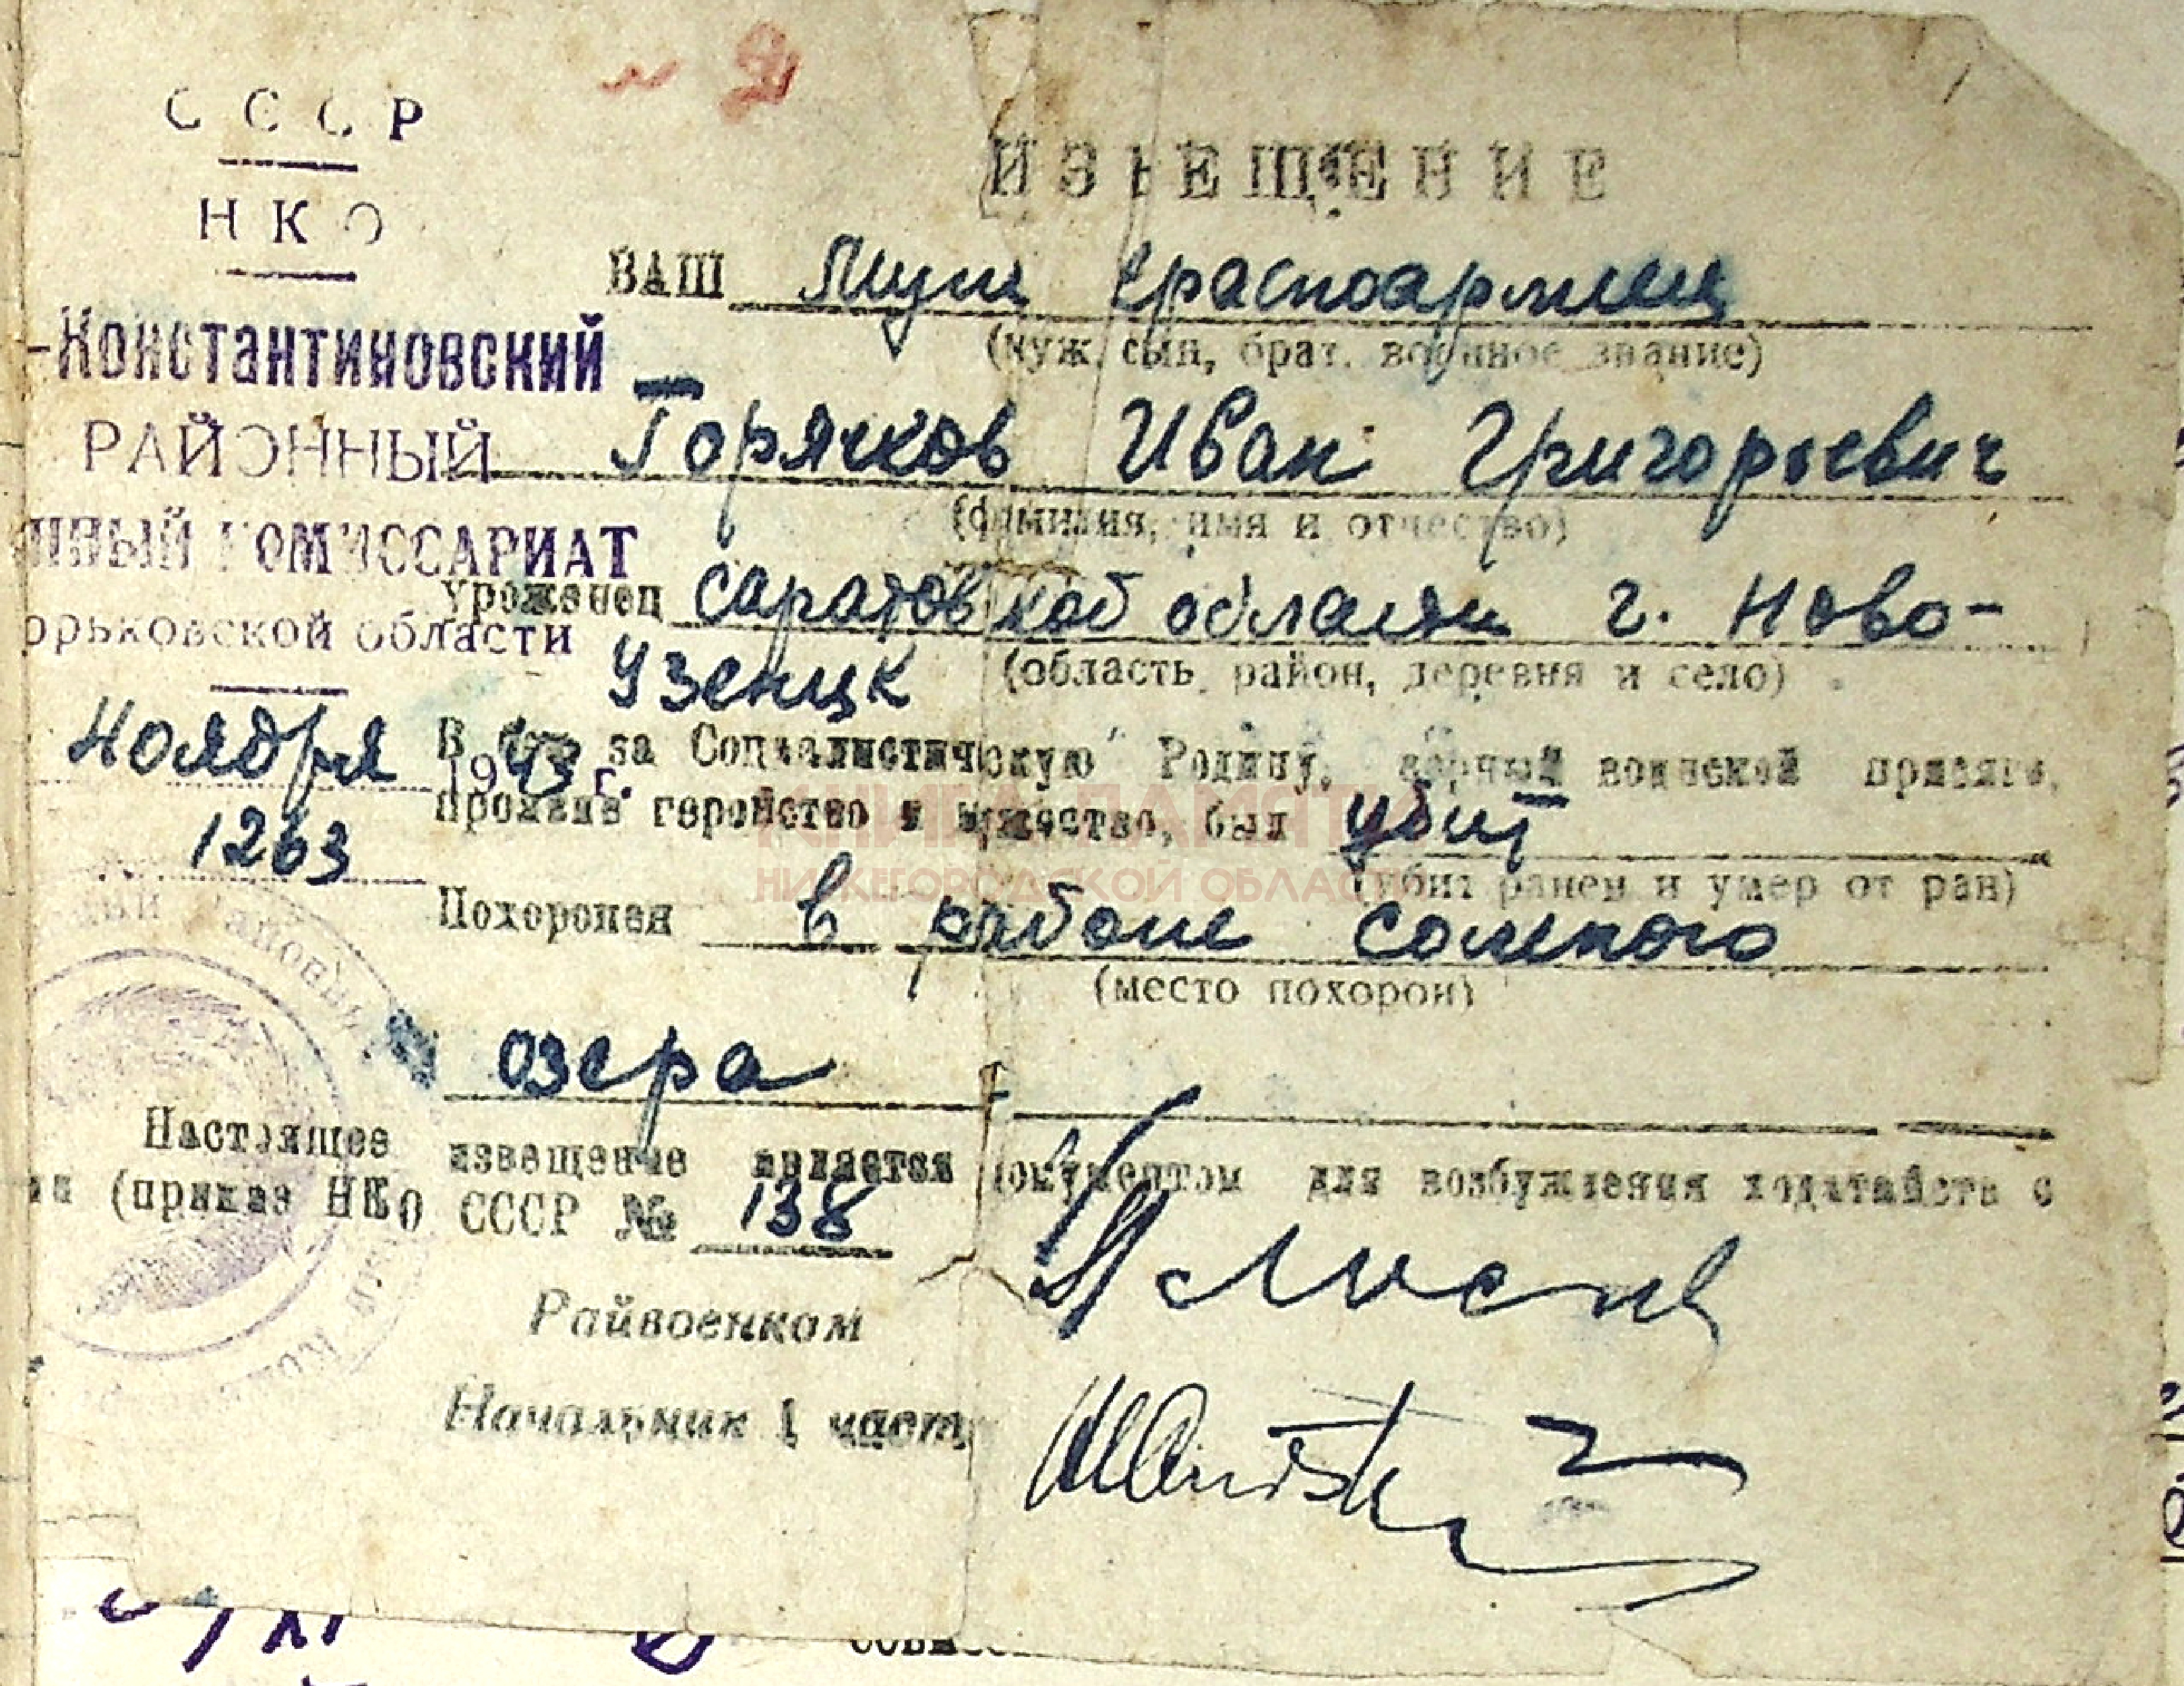 СССР
НКО
-Константиновский
РАЙОННЫЙ
нный КОМИССАРИАТ
орьковской области
Ноября 1943 г.
1263
ИЗВЕЩЕНИЕ
ВАШ муж красноармеец
(муж, сын, брат, военное звание)
Горячков Иван Григорьевич
(фамилия, имя и отчество)
уроженец Саратовской области г. Ново-
(область, район, деревня и село)
Узенцк
В бою за Социалистическую Родину, верный воинской присяге,
проявив геройство и мужество, был убит
(убит, ранен и умер от ран)
Похоронен в районе соленого
(место похорон)
озера
Настоящее извещение является документом для возбуждения ходатайств о
ии (приказ НКО СССР № 138
Райвоенком
Начальник 1 част
КНИГА ПАМЯТИ
НИЖЕГОРОДСКОЙ ОБЛАСТИ